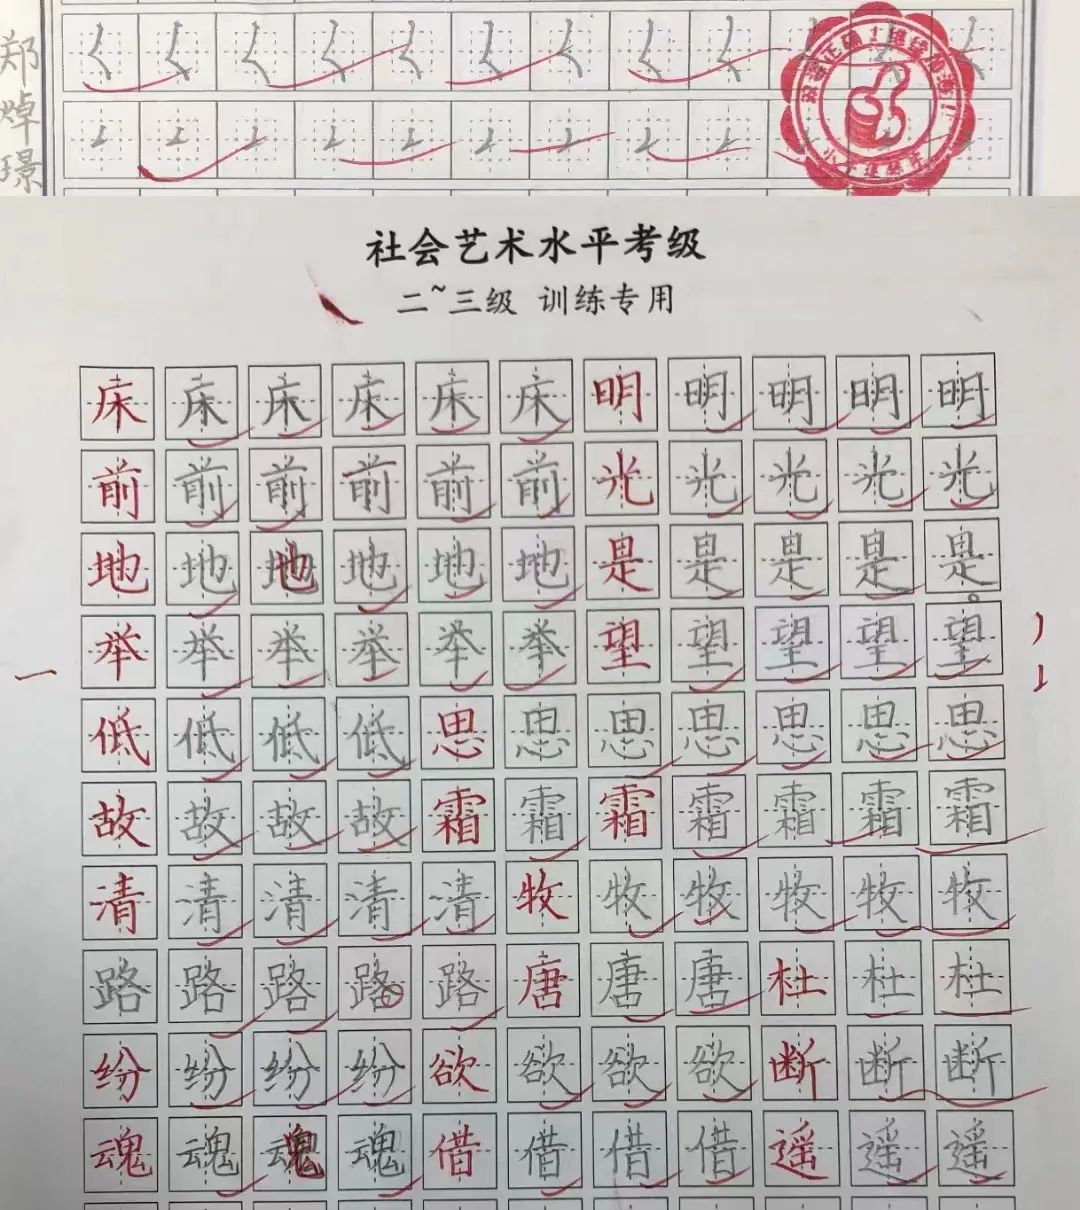 郑焯璟
社会艺术水平考级
二~三级 训练专用
床床床床床床明明明明明
前前前前前前光光光光光
地地地地地地是是是是是
举举举举举举望望望望望
低低低低思思思思思思思
故故故故霜霜霜霜霜霜霜
清清清清清牧牧牧牧牧牧
路路路路路唐唐唐杜杜杜
纷纷纷纷欲欲欲欲断断断
魂魂魂魂借借借借遥遥遥